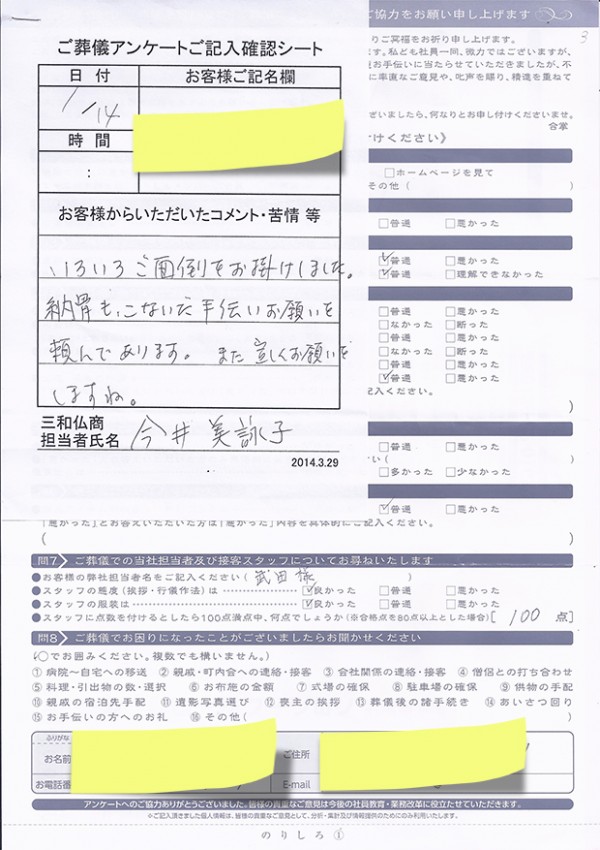 ご協力をお願い申し上げます
3
りご冥福をお祈り申し上げます。
す。私ども社員一同、微力ではございますが、
お手伝いに当たらせていただきましたが、不
に率直なご意見や、叱声を賜り、精進を重ねて
ざいましたら、何なりとお申し付けくださいませ。
合掌
けください》
□ホームページを見て
その他( )
□普通 □悪かった
□普通 □悪かった
□普通 □理解できなかった
□普通 □悪かった
□なかった □断った
□普通 □悪かった
□なかった □断った
□普通 □悪かった
□普通 □悪かった
記入ください。
)
□普通 □悪かった
)
□多かった □少なかった
□普通 □悪かった
ご葬儀アンケートご記入確認シート
日付 お客様ご記名欄
1/14
時間
:
お客様からいただいたコメント・苦情 等
いろいろご面倒をお掛けしました。
納骨も、こないだ手伝いお願いを
頼んであります。また宜しくお願いを
しますね。
三和仏商
担当者氏名 今井 美詠子
2014.3.29
「悪かった」とお答えいただいた方は「悪かった」内容を具体的にご記入ください。
( )
問7 ご葬儀での当社担当者及び接客スタッフについてお尋ねいたします
●お客様の弊社担当者名をご記入ください( 武田 様 )
●スタッフの態度(挨拶・行儀作法)は ☑良かった □普通 □悪かった
●スタッフの服装は ☑良かった □普通 □悪かった
●スタッフに点数を付けるとしたら100点満点中、何点でしょうか(※合格点を80点以上とした場合)[ 100 点]
問8 ご葬儀でお困りになったことがございましたらお聞かせください
(○でお囲みください。複数でも構いません。)
① 病院〜自宅への移送 ② 親戚・町内会への連絡・接客 ③ 会社関係の連絡・接客 ④ 僧侶との打ち合わせ
⑤ 料理・引出物の数・選択 ⑥ お布施の金額 ⑦ 式場の確保 ⑧ 駐車場の確保 ⑨ 供物の手配
⑩ 親戚の宿泊先手配 ⑪ 遺影写真選び ⑫ 喪主の挨拶 ⑬ 葬儀後の諸手続き ⑭ あいさつ回り
⑮ お手伝いの方へのお礼 ⑯ その他( )
ふりがな
お名前 ご住所
お電話番 E-mail
アンケートへのご協力ありがとうございました。皆様の貴重なご意見は今後の社員教育・業務改革に役立たせていただきます。
※ご記入頂きました個人情報は、皆様の貴重なご意見として、分析・集計及び情報提供のためにのみ利用いたします。
のりしろ①